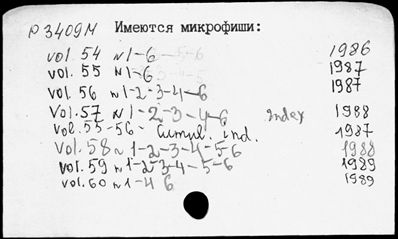 P 3409M Имеются микрофиши:
vol. 54 N 1-6 1986
vol. 55 N 1-6 1987
vol. 56 N 1-2-3-4-6 1987
Vol. 57 N 1-2-3-4-6 Index 1988
vol. 55-56- Cumul. ind. 1987
Vol. 58 N 1-2-3-4-5-6 1988
vol. 59 N 1-2-3-4-5-6 1989
vol. 60 N 1-4 6 1989